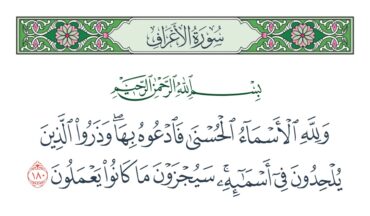 سُورَةُ الأَعْرَافِ
بِسْمِ اللَّهِ الرَّحْمَٰنِ الرَّحِيمِ
وَلِلَّهِ الْأَسْمَاءُ الْحُسْنَىٰ فَادْعُوهُ بِهَا ۖ وَذَرُوا الَّذِينَ
يُلْحِدُونَ فِي أَسْمَائِهِ ۚ سَيُجْزَوْنَ مَا كَانُوا يَعْمَلُونَ ١٨٠